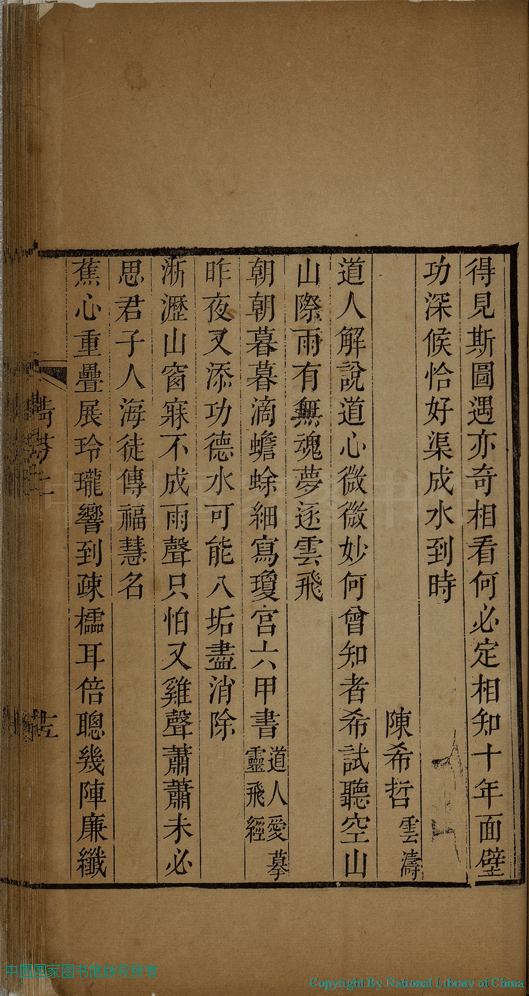 得見斯圖遇亦奇相看何必定相知十年面壁
功深候恰好渠成水到時
陳希哲雲濤
道人解說道心微微妙何曾知者希試聽空山
山際雨有無魂夢逐雲飛
朝朝暮暮滴蟾蜍細寫瓊宮六甲書道人愛摹靈飛經
昨夜又添功德水可能八垢盡消除
淅瀝山窗寐不成雨聲只怕又雞聲蕭蕭未必
思君子人海徒傳福慧名
蕉心重疊展玲瓏響到疎櫺耳倍聰幾陣廉纖
Copyright By National Library of China